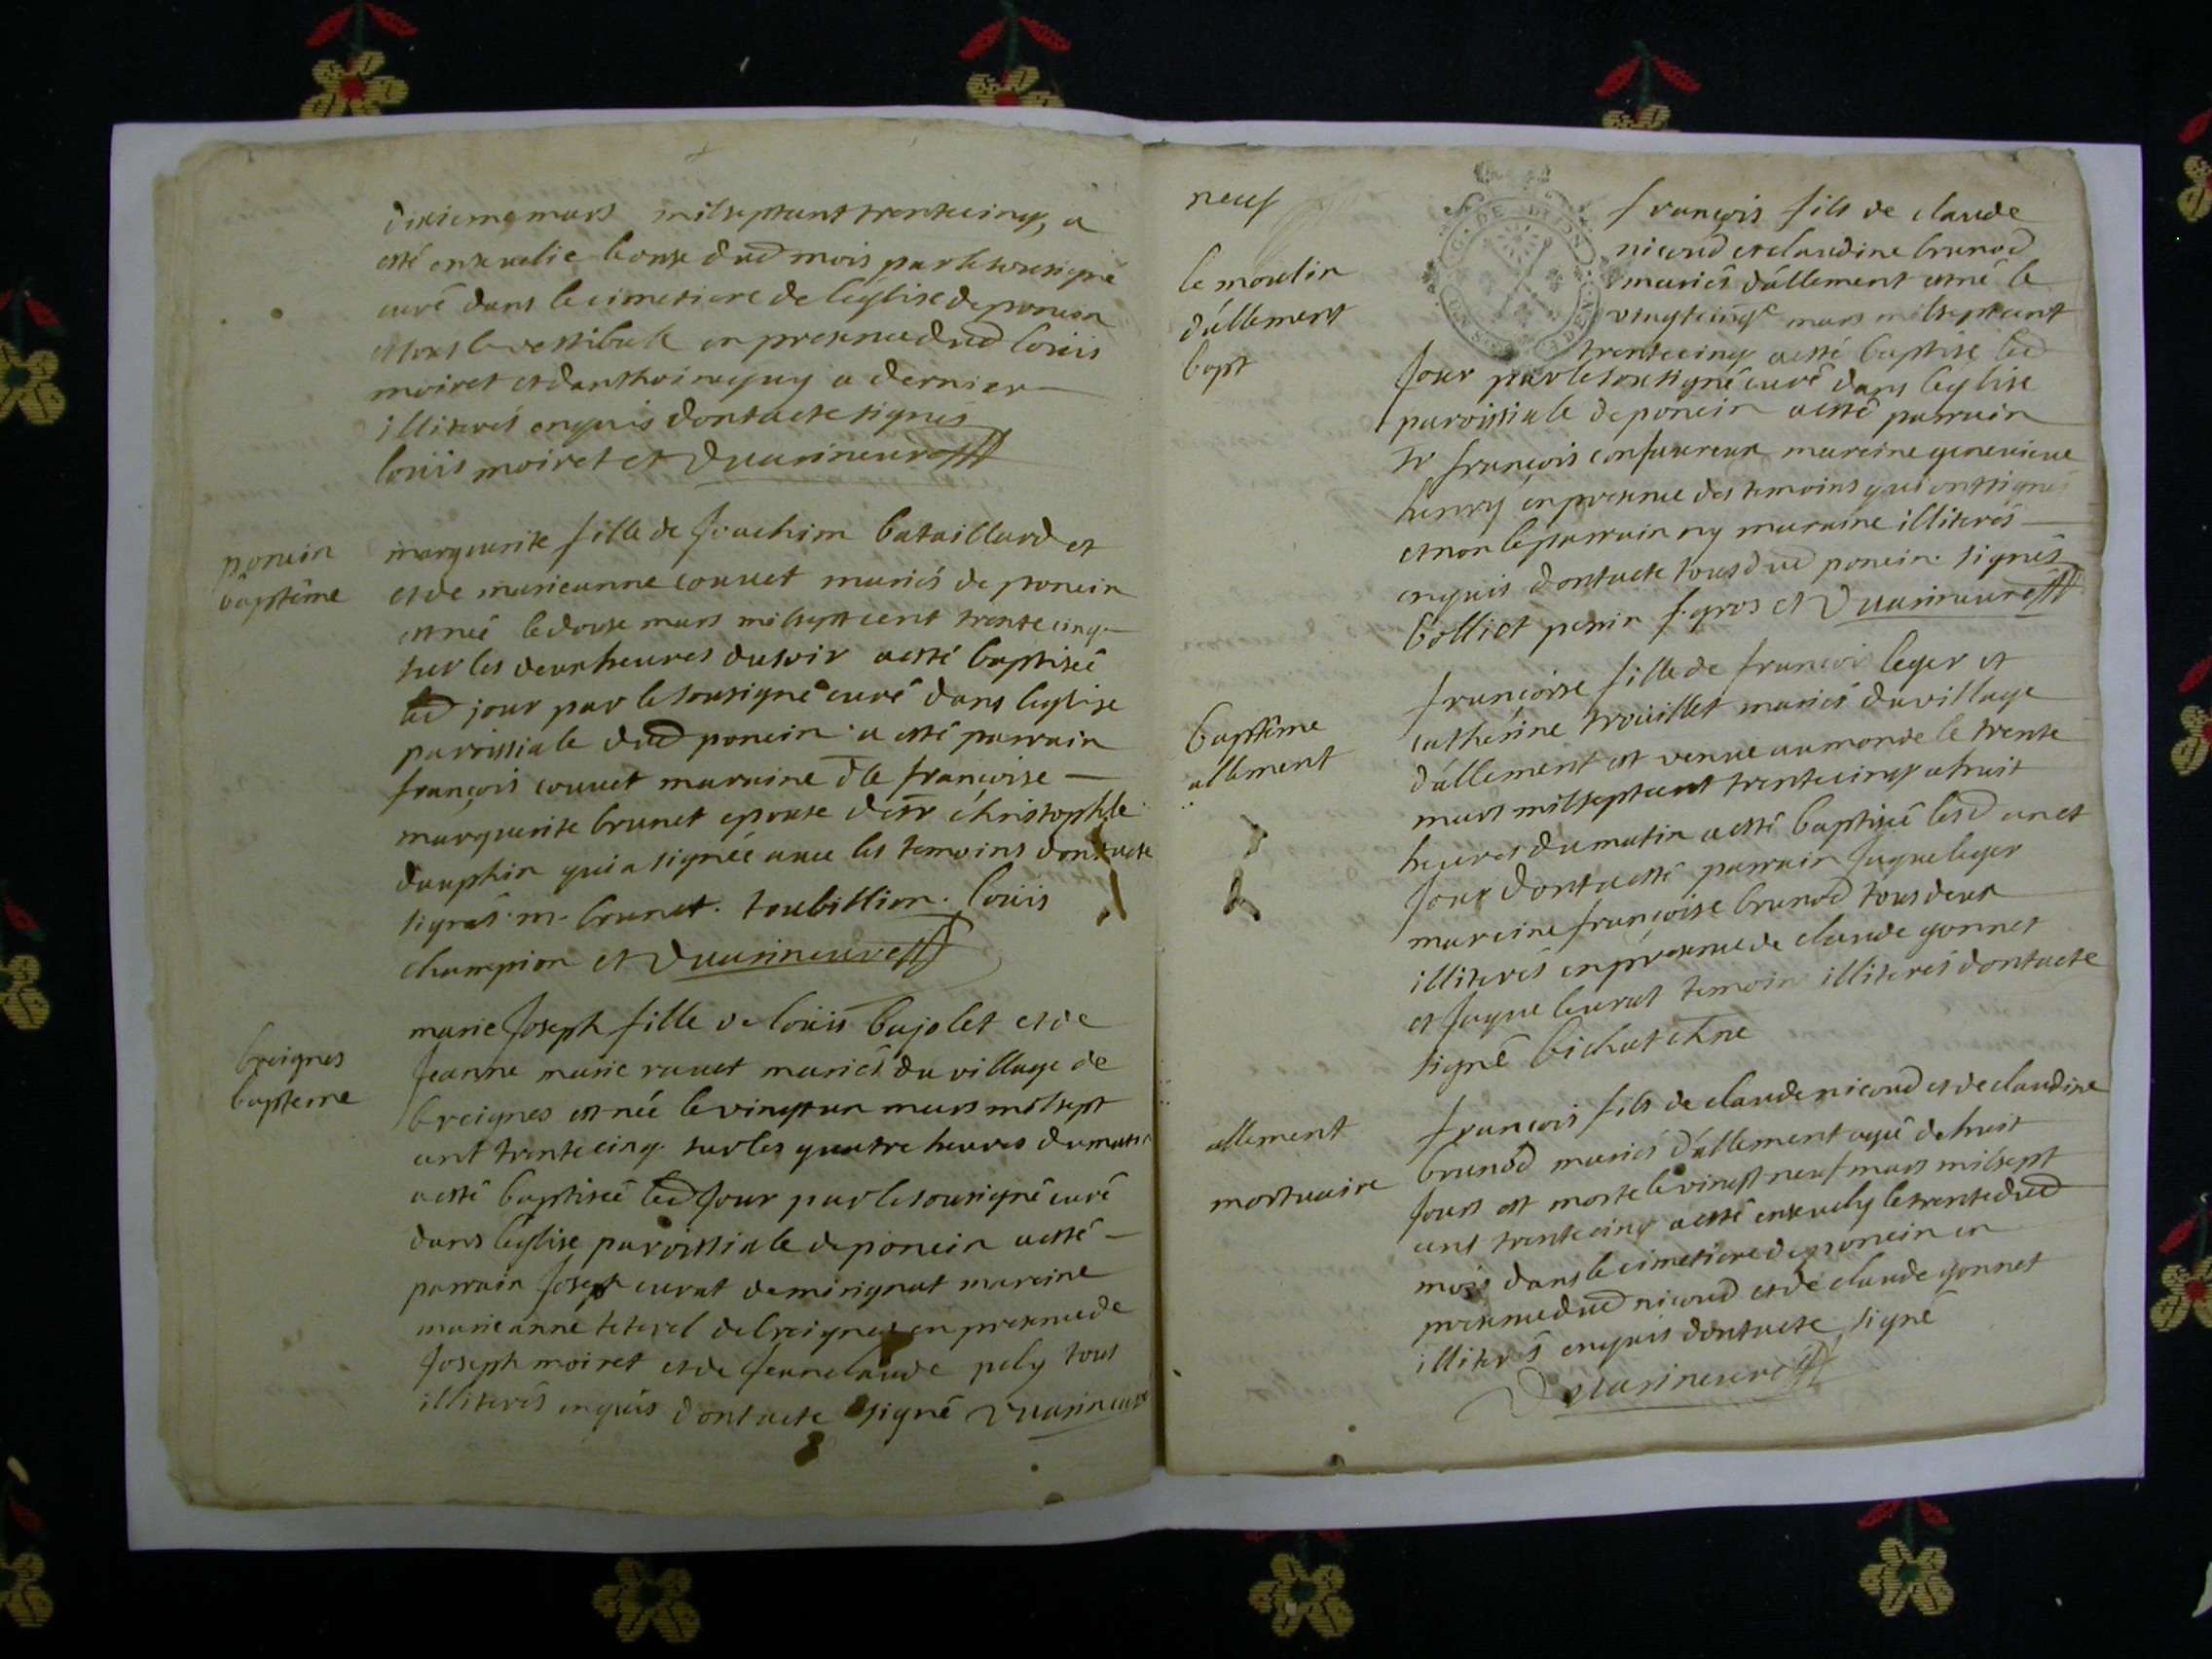 dixieme mars milseptcent trentecinq, a
esté ensevelie le onze dud mois par le sousigné
curé dans le cimetiere de l'église de poncin
et sous le vestibule en presence dud loüis
moiret et danthoine guy a dernier
illiterés enquis dont acte signés
loüis moiret et Duarin curé
poncin
baptême
marguerite fille de Joachim bataillard et
et de marieanne couuet mariés de poncin
est née le douze mars milseptcent trente cinq
sur les deux heures du soir a esté baptisée
led jour par le sousigné curé dans leglise
paroissiale dud poncin a esté parrain
françois couuet maraine dle françoise
marguerite brunet epouse de sr christophle
dauphin qui a signée avec les temoins dont acte
signés m. brunet. toubillion. loüis
champion et Duarin curé
breignes
bapteme
marie Joseph fille de loüis bajolet et de
Jeanne marie rauet mariés du village de
breignes est née le vingt un mars milsept
cent trente cinq sur les quatre heures du matin
a esté baptisée led Jour par le sousigné curé
dans léglise paroissiale de poncin a esté
parrain Joseph curat de mirignat mareine
marieanne teterel de breignes en presence de
Joseph moiret et de Jeanclaude pely tous
illiterés enquis dont acte signé Duarin curé
neuf
G. DE DIJON
le moulin
dállement
bapt
françois fils de claude
nicoud et claudine brunod
mariés dállement est né le
vingtcinq mars milseptcent
trentecinq a esté baptisé led
Jour par le sousigné curé dans leglise
paroissiale de poncin a esté parrain
sr françois confavreux mareine genevieve
henry en presence des temoins qui ont signé
et non le parrain ny maraine illiterés
enquis dont acte tous dud poncin. signés
bolliet perrin f. gros et Duarin curé
baptême
allement
françoise fille de francois leger et
catherine troüillet mariés du village
dállement est venue au monde le trente
mars milseptcent trentecinq a huit
heures du matin a esté baptisée lesd an et
Jour dont a esté parrain Jaque leger
mareine françoise brunod tous deux
illiterés en presence de claude gonnet
et Jaque leurat temoin illiterés dont acte
signé bichat chne
allement
mortuaire
francois fils de claude nicoud et de claudine
brunod mariés d'allement agé de huit
Jours est morte le vingt neuf mars milsept
cent trente cinq a esté ensevely le trente dud
mois dans le cimetiere de poncin en
presence dud nicoud et de claude gonnet
illiterés enquis dont acte signé
Duarin curé